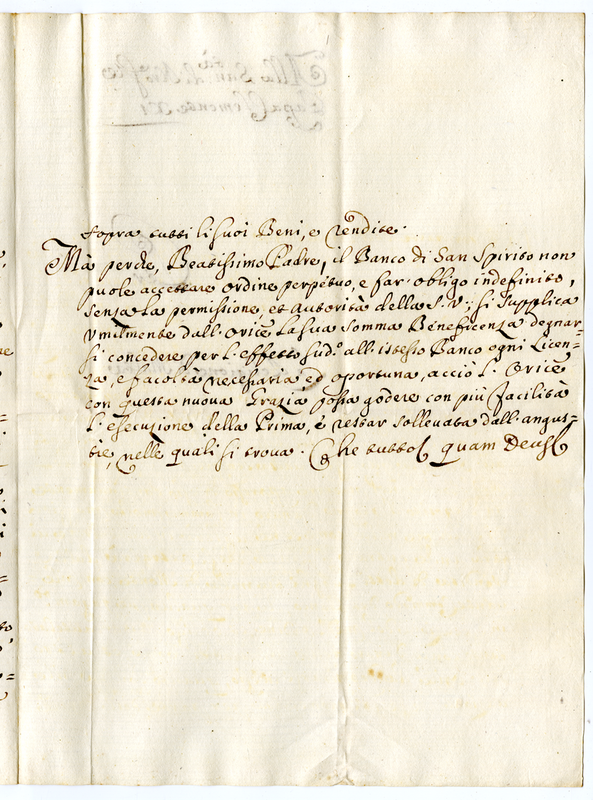 sopra tutti li suoi Beni, e rendite.
Mà perche, Beatissimo Padre, il Banco di San Spirito non
puole accettare ordine perpetuo, e far obligo indefinito,
senza la permissione, et autorità della S. V.; si supplica
umilmente dall' Orice la sua somma Beneficenza degnar-
si concedere per l'effetto sud.o all' istesso Banco ogni licen-
za, e facoltà necessaria ed oportuna, acciò l' Orice
con questa nuova Grazia possa godere con più facilità
l' esecuzione della Prima, e restar sollevata dall' angus=
tie, nelle quali si trova. Che tutto quam Deus